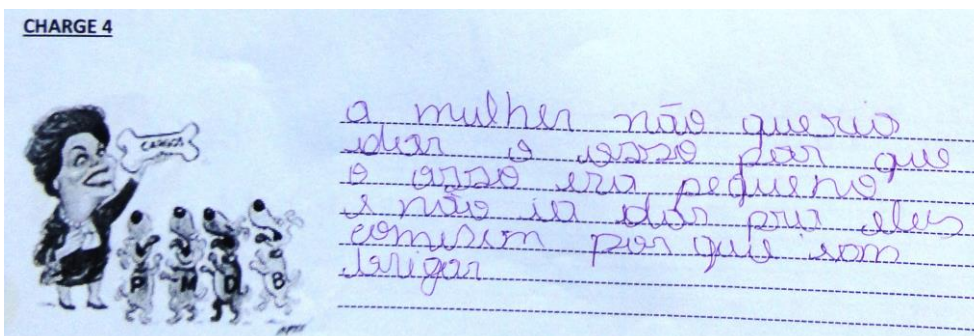 CHARGE 4
CARGOS
P M D B
a mulher não queria
dar o osso por que
o osso era pequeno
e não ia dar pra eles
comerem por que iam
brigar